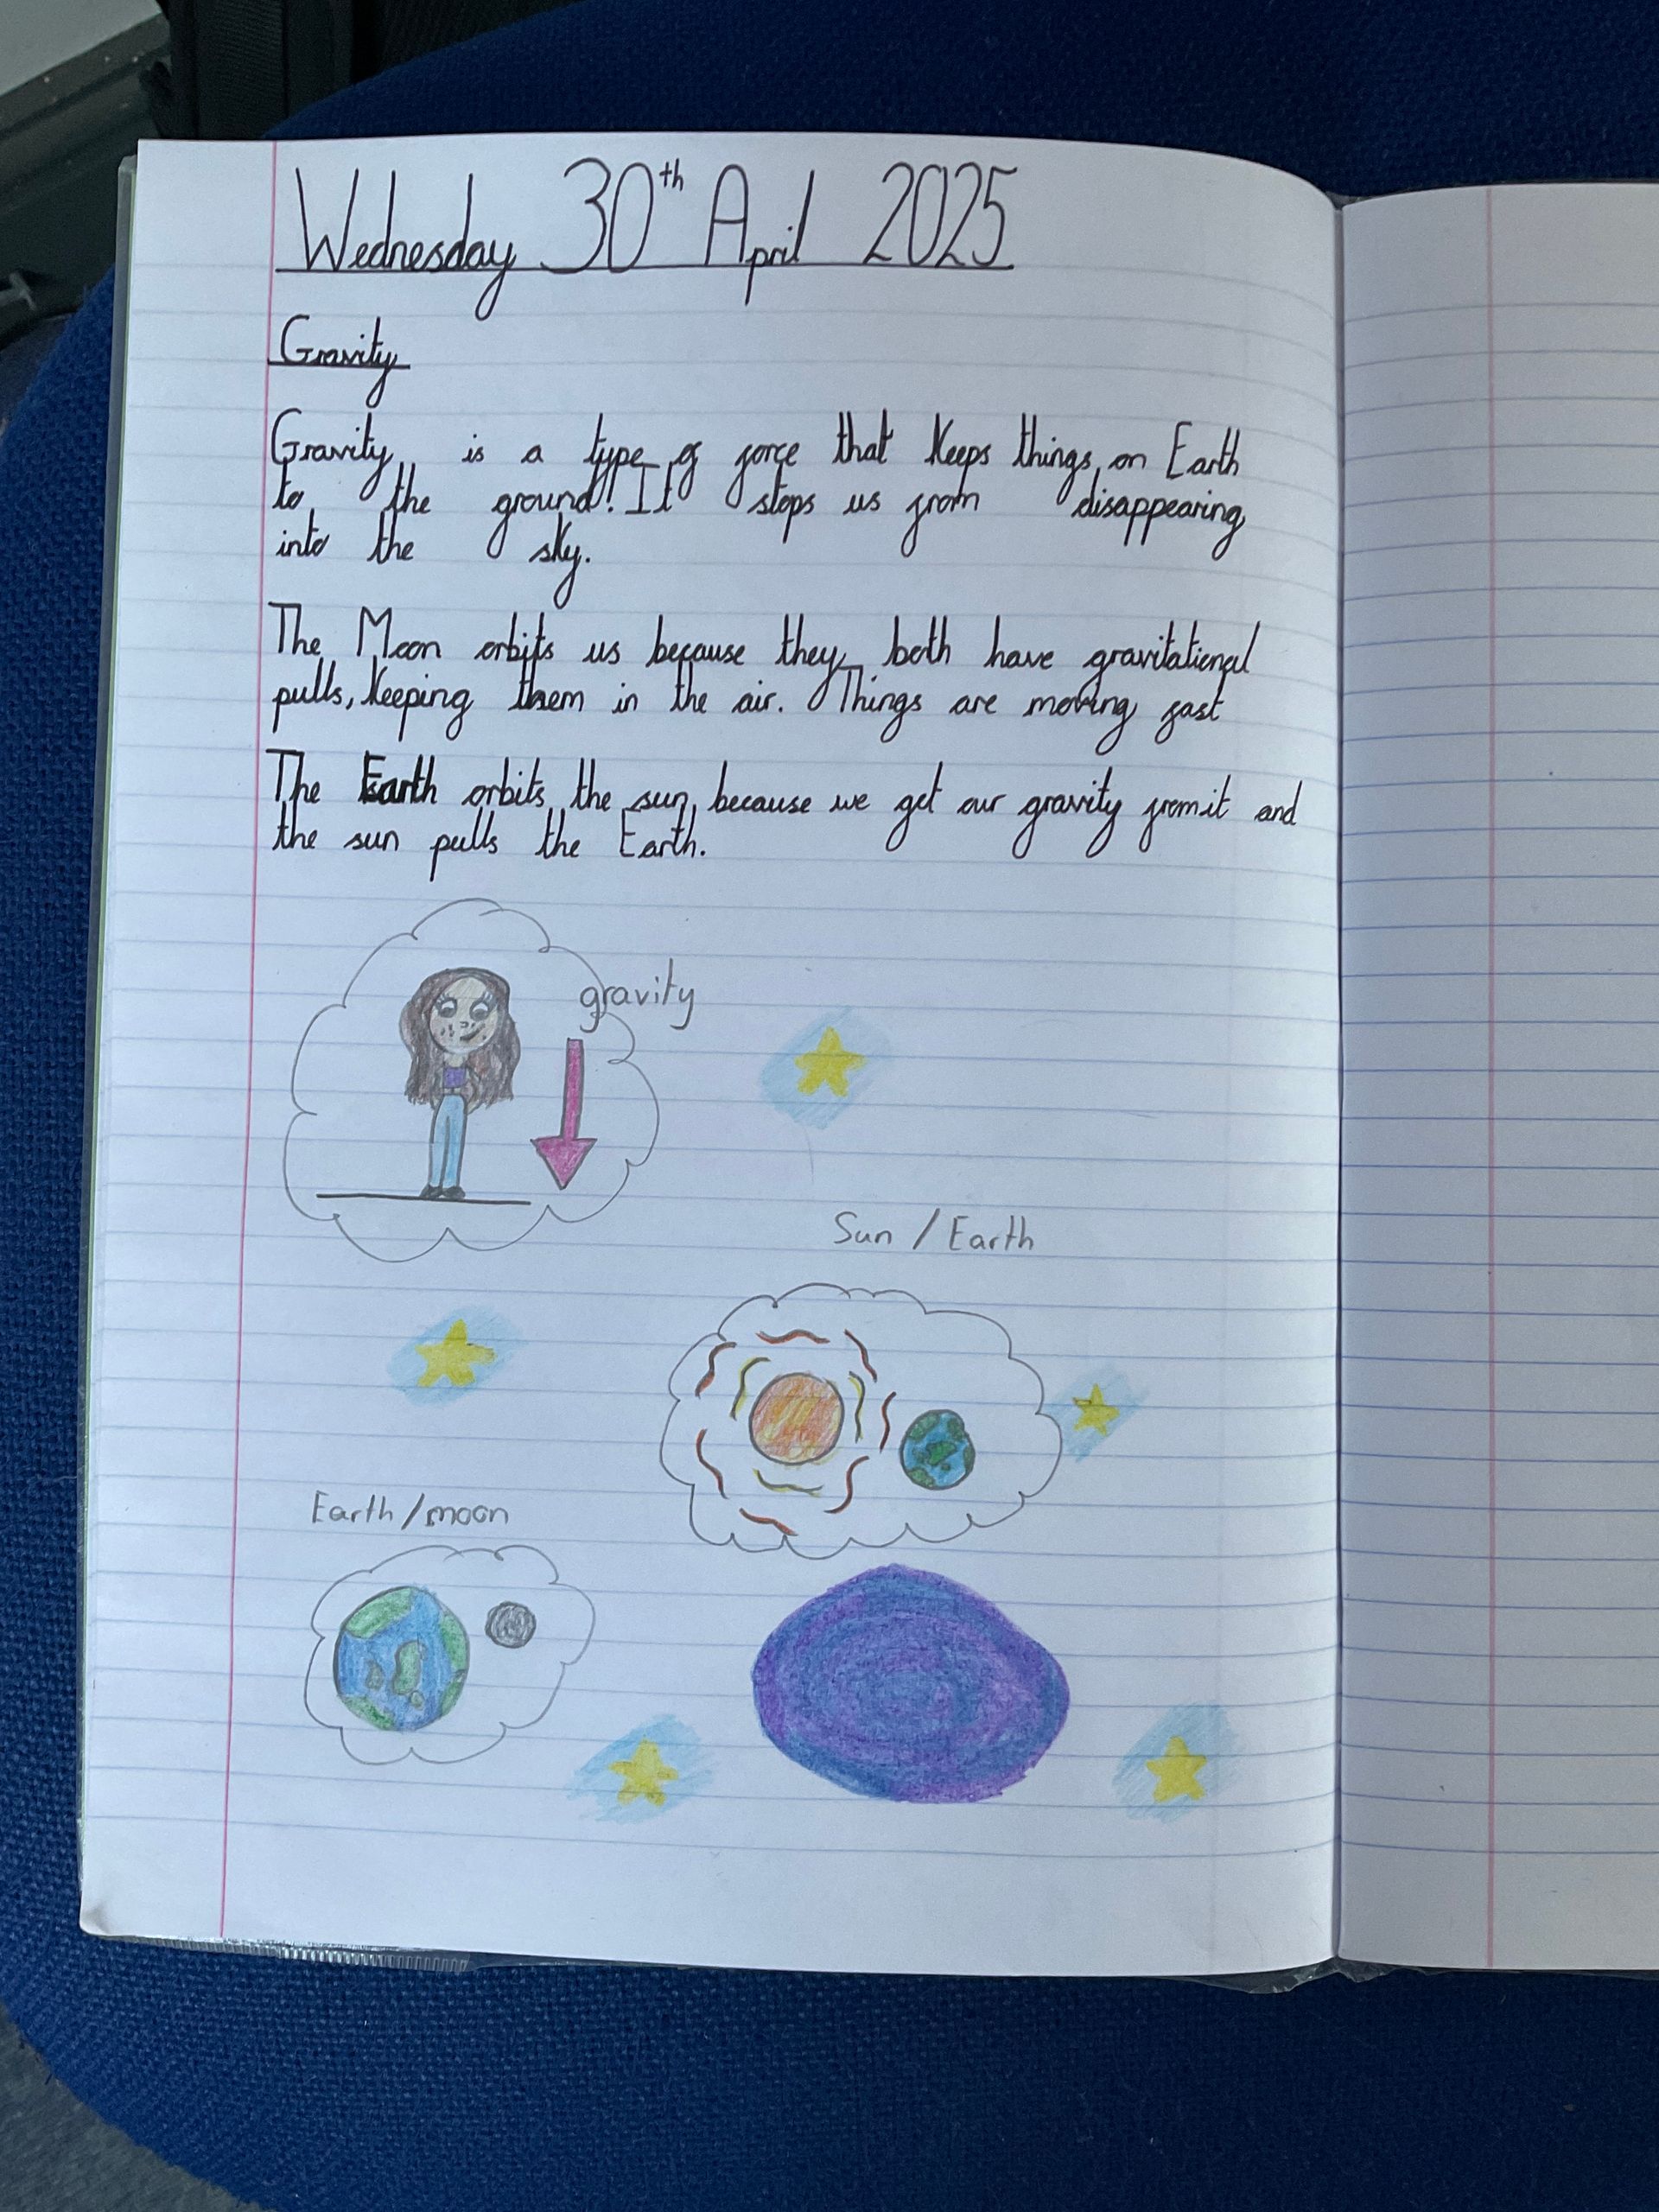 Wednesday 30th April 2025
Gravity
Gravity is a type of force that keeps things on Earth
to the ground! It stops us from disappearing
into the sky.
The Moon orbits us because they both have gravitational
pulls, keeping them in the air. Things are moving fast
The Earth orbits the sun, because we get our gravity from it and
the sun pulls the Earth.
gravity
Sun / Earth
Earth / moon